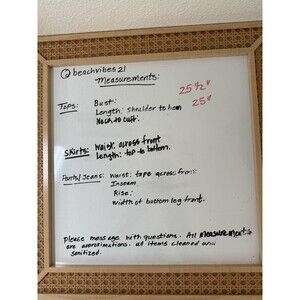 @beachvibes21
Measurements:
Tops: Bust: 25 1/2"
Length: Shoulder to hem 25"
Neck to cuff.
Skirts: Waist: across front
Length: top to bottom.
Pants/Jeans: Waist: taps across front
Inseam
Rise:
width of bottom leg front.
Please message with questions. All measurements
are approximations. all items cleaned and
sanitized.